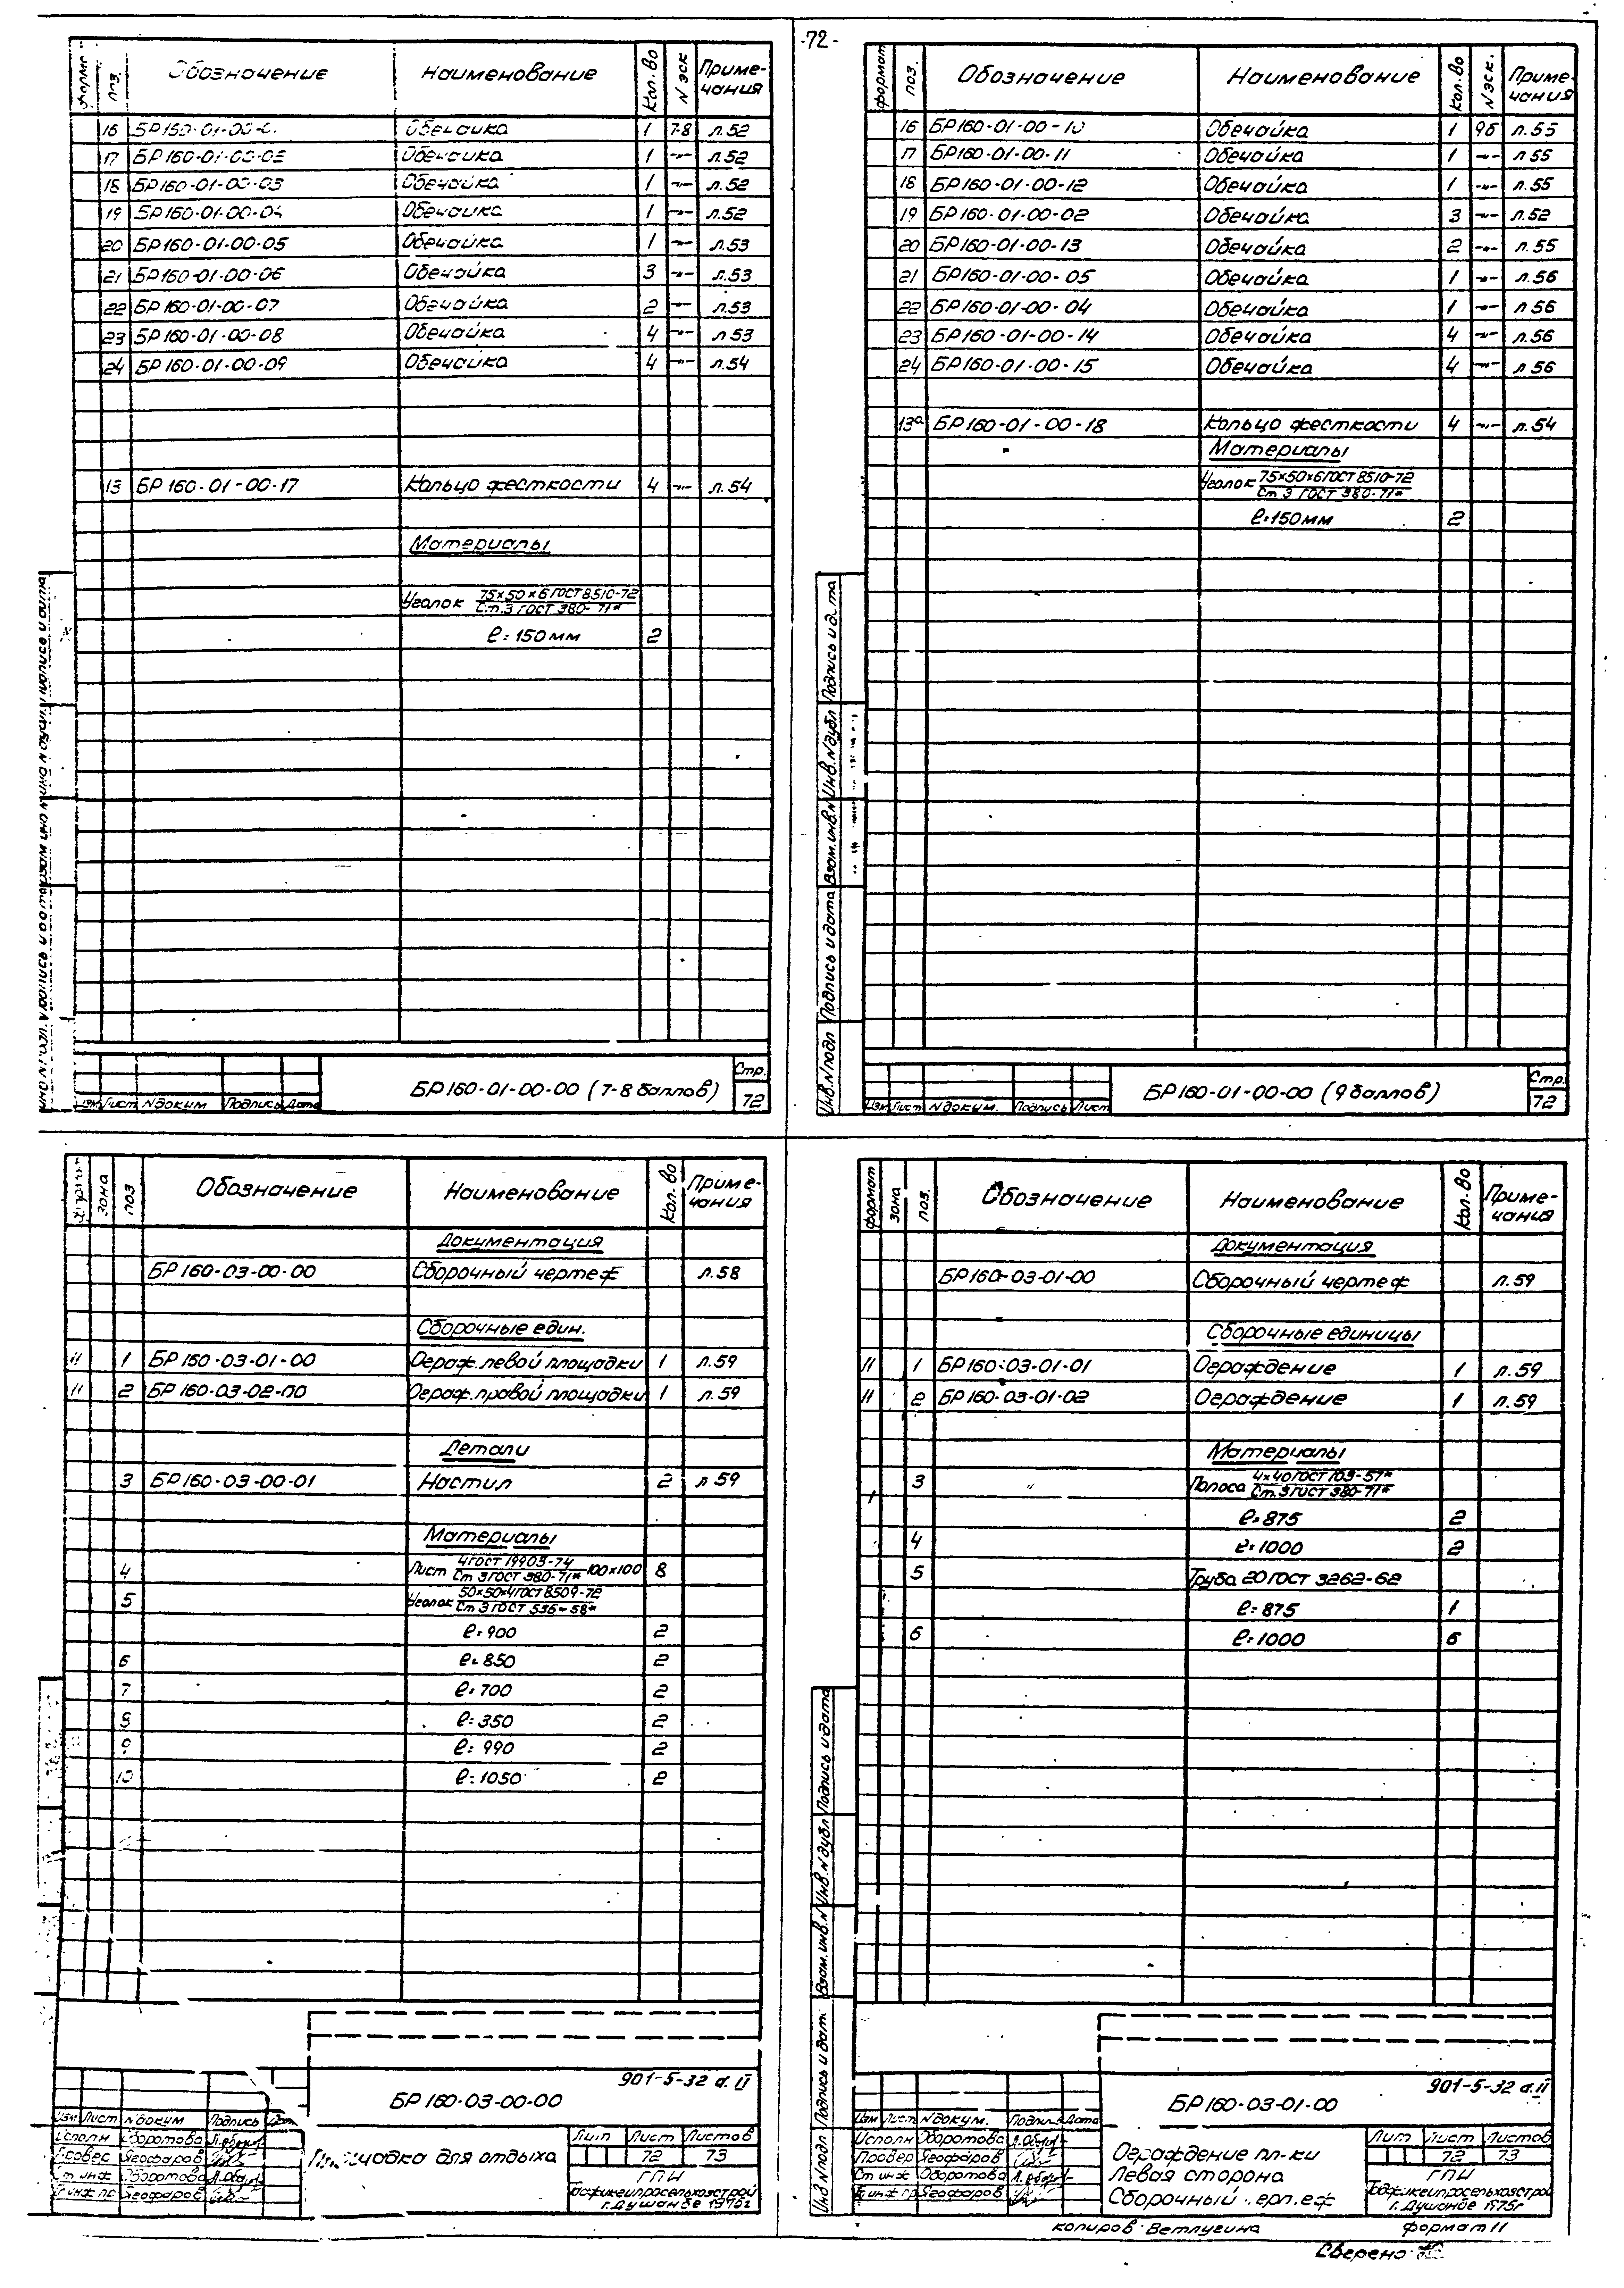 -72-
поз. Обозначение Наименование Кол.во N эск Приме-
чания
16 Обечайка 1 7-8 л.52
17 Обечайка 1 -"- л.52
18 БР160-01-00-03 Обечайка 1 -"- л.52
19 БР160-01-00-04 Обечайка 1 -"- л.52
20 БР160-01-00-05 Обечайка 1 -"- л.53
21 БР160-01-00-06 Обечайка 3 -"- л.53
22 БР160-01-00-07 Обечайка 2 -"- л.53
23 БР160-01-00-08 Обечайка 4 -"- л53
24 БР160-01-00-09 Обечайка 4 -"- л.54
13 БР160-01-00-17 Кольцо жесткости 4 -"- л.54
Материалы
Уголок 75х50х6 ГОСТ 8510-72
Ст.3 ГОСТ 380-71*
ℓ=150мм 2
БР160-01-00-00 (7-8 баллов)
Изм Лист Nдоким Подпись Дата
Стр.
72
формат поз. Обозначение Наименование Кол.во N эск. Приме-
чания
16 БР160-01-00-10 Обечайка 1 9б л.55
17 БР160-01-00-11 Обечайка 1 -"- л55
18 БР160-01-00-12 Обечайка 1 -"- л.55
19 БР160-01-00-02 Обечайка 3 -"- л.52
20 БР160-01-00-13 Обечайка 2 -"- л.55
21 БР160-01-00-05 Обечайка 1 -"- л.56
22 БР160-01-00-04 Обечайка 1 -"- л56
23 БР160-01-00-14 Обечайка 4 -"- л.56
24 БР160-01-00-15 Обечайка 4 -"- л56
13а БР160-01-00-18 Кольцо жесткости 4 -"- л.54
Материалы
Уголок 75х50х6 ГОСТ 8510-72
Ст 3 ГОСТ 380-71*
ℓ=150мм 2
Инв.Nподл Подпись и дата Взам.инв.N Инв.Nдубл Подпись и дата
БР160-01-00-00 (9 баллов)
Изм Лист Nдокум. Подпись Лист
Стр.
72
зона поз Обозначение Наименование Кол.во Приме-
чания
Документация
БР160-03-00-00 Сборочный чертеж л.58
Сборочные един.
11 1 БР160-03-01-00 Огражд.левой площадки 1 л.59
11 2 БР160-03-02-00 Огражд.правой площадки 1 л.59
Детали
3 БР160-03-00-01 Настил 2 л59
Материалы
4 Лист 4 ГОСТ 19903-74 100х100 8
Ст 3 ГОСТ 380-71*
5 Уголок 50х50х4 ГОСТ 8509-72
Ст 3 ГОСТ 535-58*
ℓ=900 2
6 ℓ=850 2
7 ℓ=700 2
8 ℓ=350 2
9 ℓ=990 2
10 ℓ=1050 2
901-5-32 а.II
БР160-03-00-00
Изм Лист Nдокум Подпись Дата
Исполн Оборотова
Провер Ягофаров
Ст инж Оборотова
Гл инж пр Ягофаров
Площадка для отдыха
Лит Лист Листов
72 73
ГПИ
Таджикгипросельхозстрой
г.Душанбе 1975г
формат зона поз. Обозначение Наименование Кол.во Приме-
чания
Документация
БР160-03-01-00 Сборочный чертеж л.59
Сборочные единицы
11 1 БР160-03-01-01 Ограждение 1 л.59
11 2 БР160-03-01-02 Ограждение 1 л.59
Материалы
3 Полоса 4х40 ГОСТ 103-57*
Ст.3 ГОСТ 380-71*
ℓ=875 2
4 ℓ=1000 2
5 Труба 20 ГОСТ 3262-62
ℓ=875 1
6 ℓ=1000 6
Инв Nподл Подпись и дата Взам.инв.N Инв.Nдубл Подпись и дата
901-5-32 а.II
БР160-03-01-00
Изм Лист Nдокум. Подпись Дата
Исполн Оборотова
Провер Ягофаров
Ст инж Оборотова
Гл инж пр Ягофаров
Ограждение пл-ки
левая сторона
Сборочный чертеж
Лит Лист Листов
72 73
ГПИ
Таджикгипросельхозстрой
г.Душанбе 1975г
копиров Ветлугина формат 11
Сверено